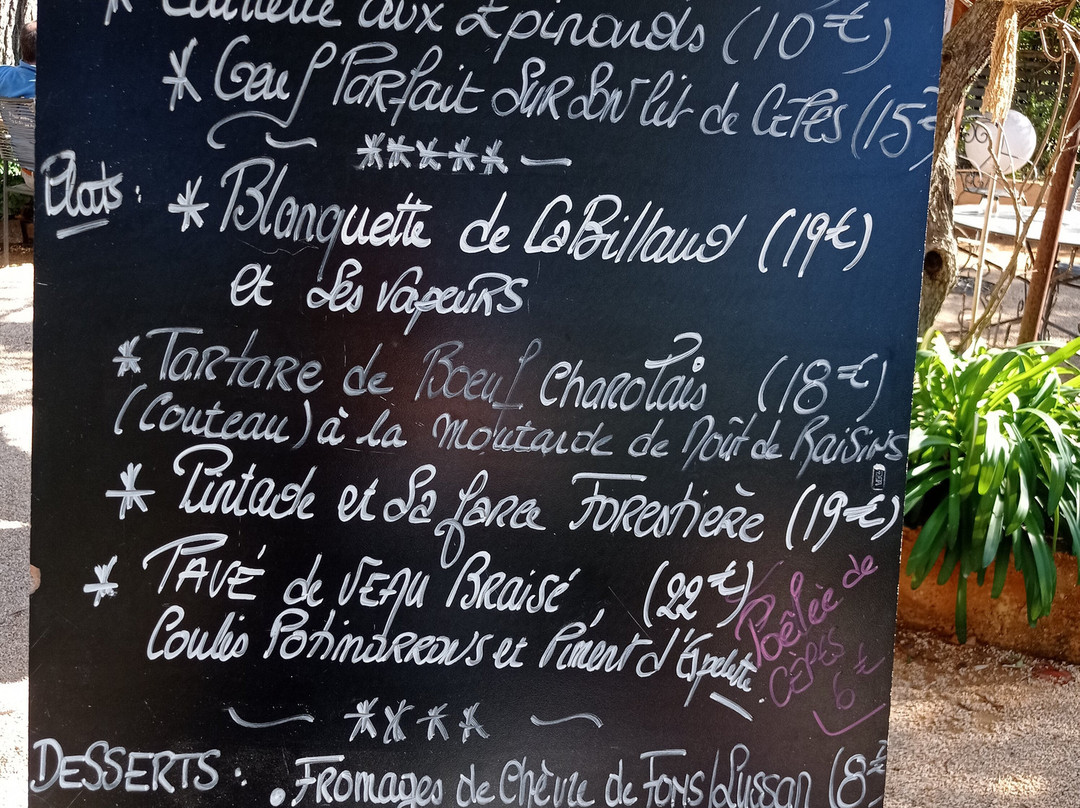 * aux Epinards (10€)
* Oeuf Parfait Sur Son lit de Cèpes (15€
*****
Plats : * Blanquette de CaBillaud (19€)
et Ses vapeurs
* Tartare de Boeuf Charolais (18€)
(Couteau) à la Moutarde de Moût de Raisins
* Pintade et Sa farce Forestière (19€)
* PAVÉ de VEAU Braisé, (22€)
Coulis Potimarrons et Piment d'Espelette.
Poêlée de
CÈPES
6€
****
DESSERTS : . Fromages de Chèvre de Fons/Lussan (8€